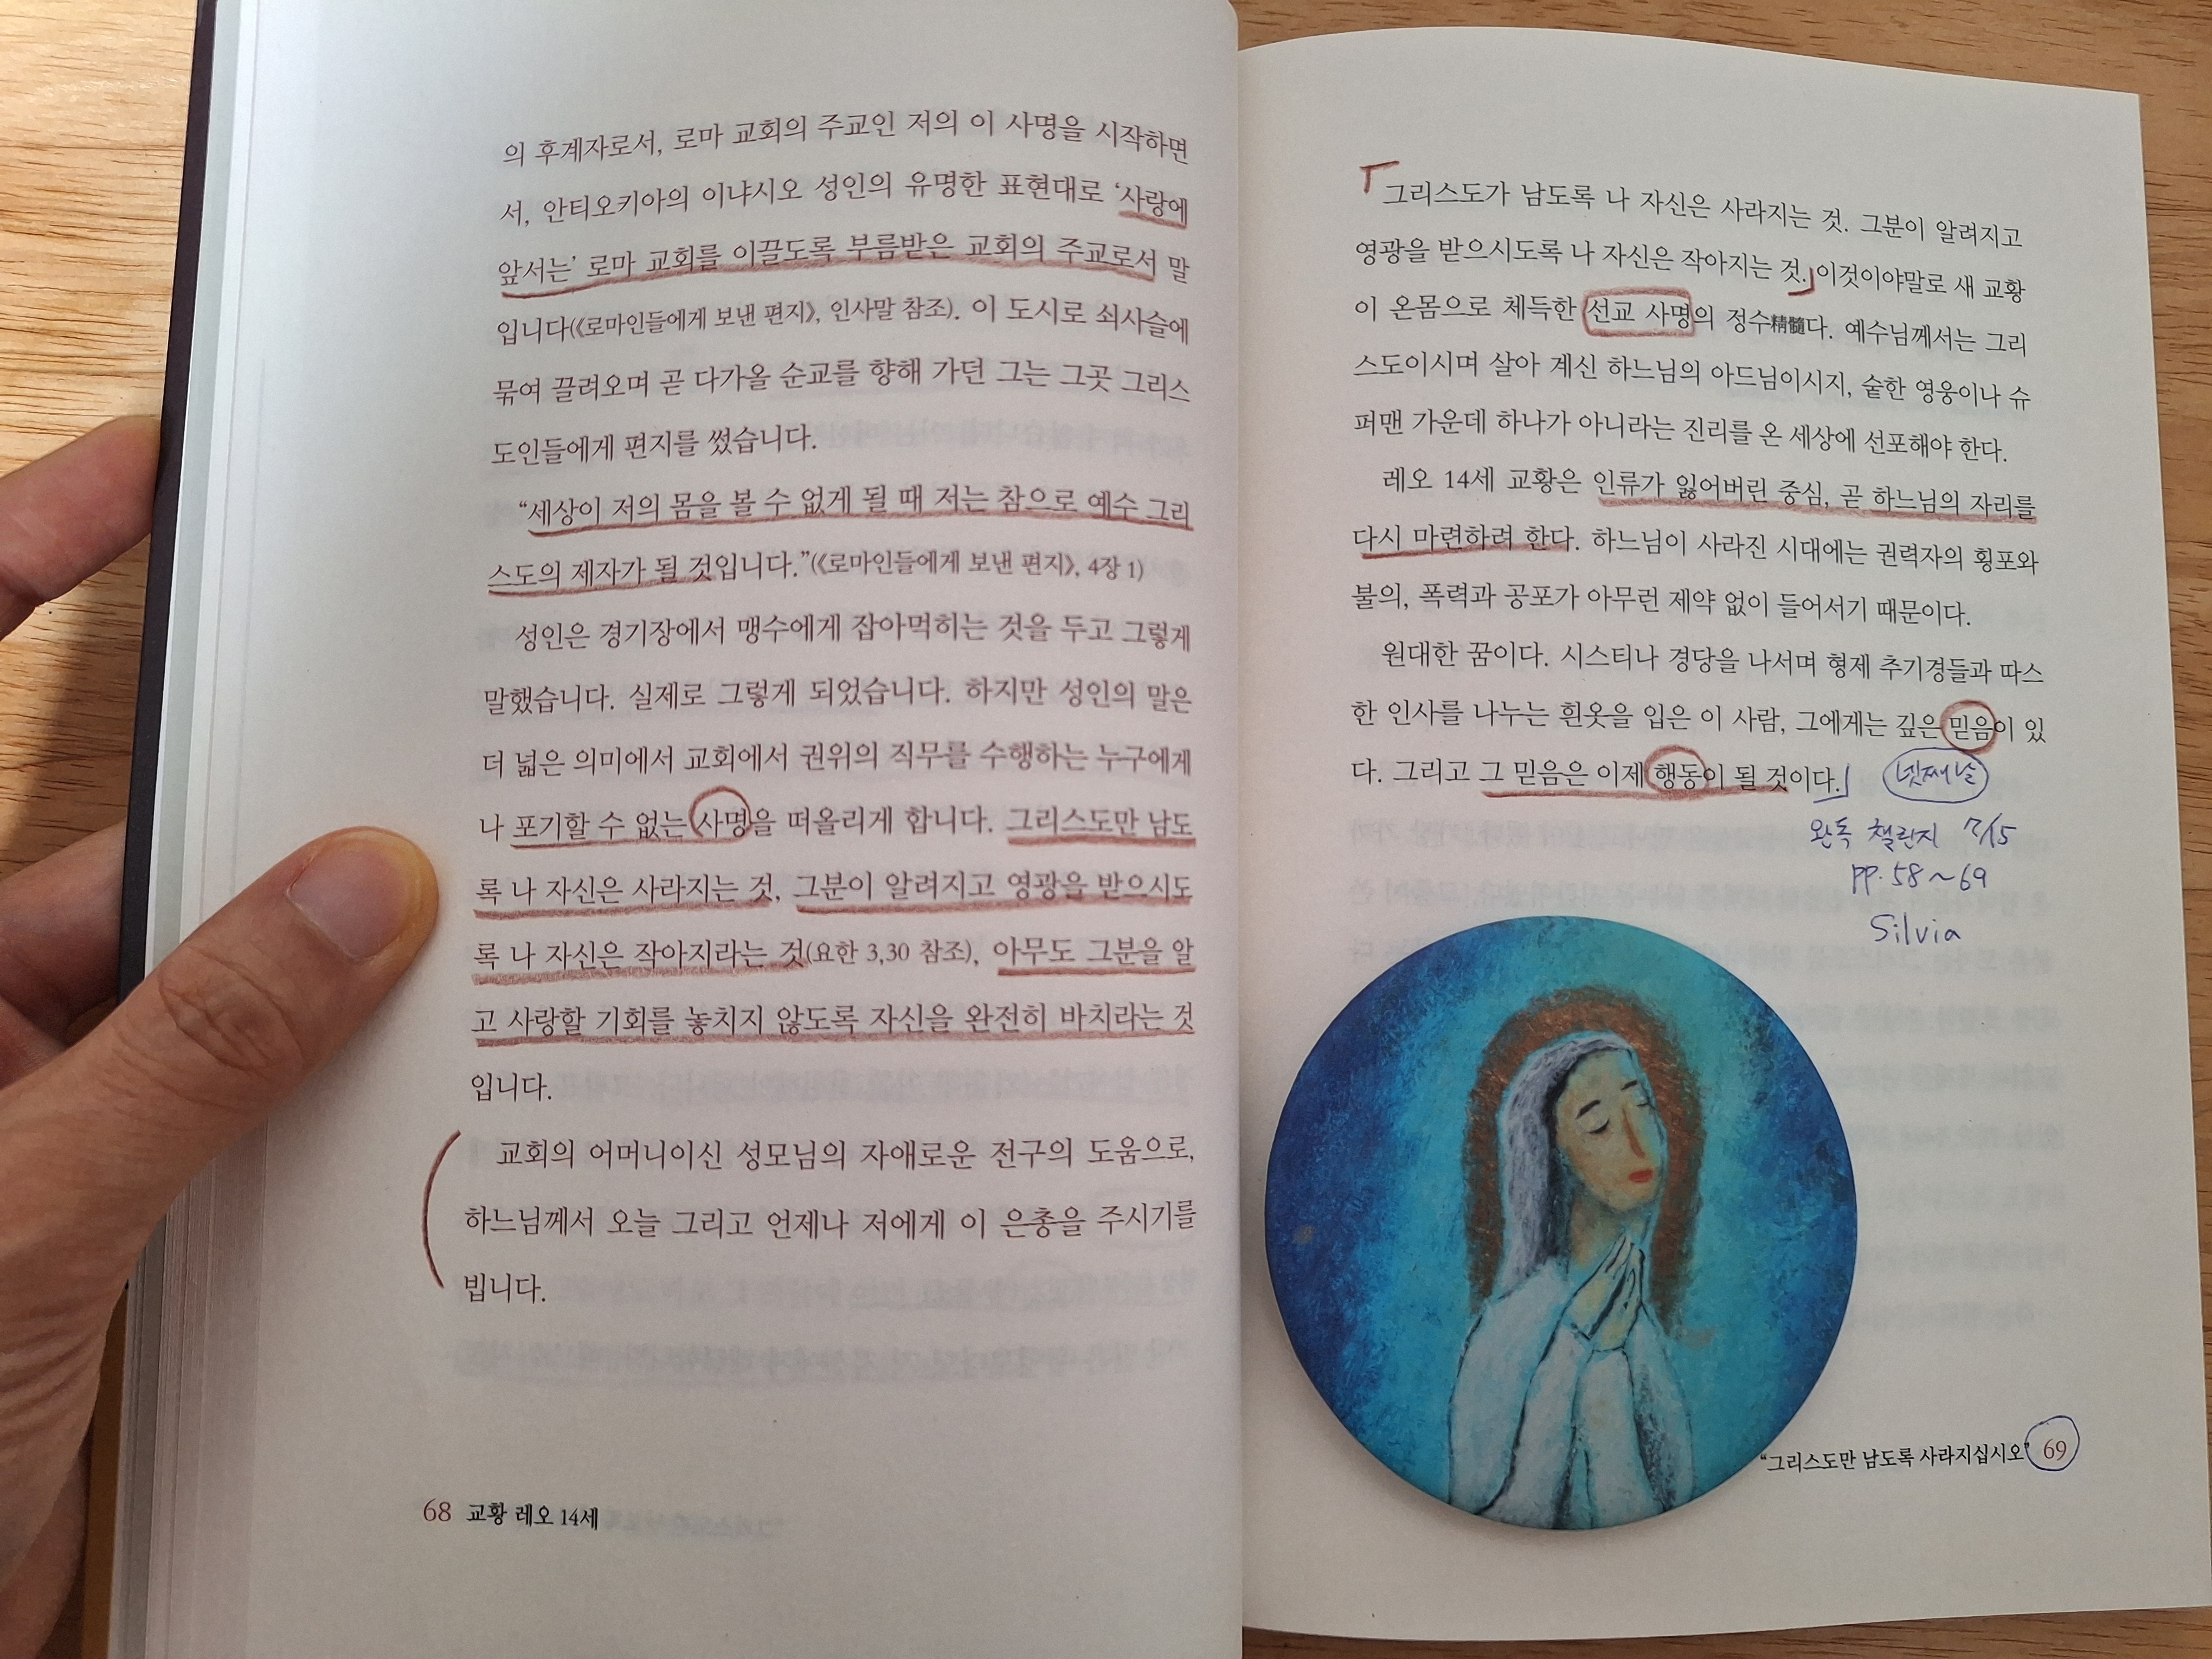 의 후계자로서, 로마 교회의 주교인 저의 이 사명을 시작하면
서, 안티오키아의 이냐시오 성인의 유명한 표현대로 ‘사랑에
앞서는’ 로마 교회를 이끌도록 부름받은 교회의 주교로서 말
입니다(《로마인들에게 보낸 편지》, 인사말 참조). 이 도시로 쇠사슬에
묶여 끌려오며 곧 다가올 순교를 향해 가던 그는 그곳 그리스
도인들에게 편지를 썼습니다.
“세상이 저의 몸을 볼 수 없게 될 때 저는 참으로 예수 그리
스도의 제자가 될 것입니다.”(《로마인들에게 보낸 편지》, 4장 1)
성인은 경기장에서 맹수에게 잡아먹히는 것을 두고 그렇게
말했습니다. 실제로 그렇게 되었습니다. 하지만 성인의 말은
더 넓은 의미에서 교회에서 권위의 직무를 수행하는 누구에게
나 포기할 수 없는 사명을 떠올리게 합니다. 그리스도만 남도
록 나 자신은 사라지는 것, 그분이 알려지고 영광을 받으시도
록 나 자신은 작아지라는 것(요한 3,30 참조), 아무도 그분을 알
고 사랑할 기회를 놓치지 않도록 자신을 완전히 바치라는 것
입니다.
교회의 어머니이신 성모님의 자애로운 전구의 도움으로,
하느님께서 오늘 그리고 언제나 저에게 이 은총을 주시기를
빕니다.
68 교황 레오 14세
「그리스도가 남도록 나 자신은 사라지는 것. 그분이 알려지고
영광을 받으시도록 나 자신은 작아지는 것.」이것이야말로 새 교황
이 온몸으로 체득한 선교 사명의 정수精髓다. 예수님께서는 그리
스도이시며 살아 계신 하느님의 아드님이시지, 숱한 영웅이나 슈
퍼맨 가운데 하나가 아니라는 진리를 온 세상에 선포해야 한다.
레오 14세 교황은 인류가 잃어버린 중심, 곧 하느님의 자리를
다시 마련하려 한다. 하느님이 사라진 시대에는 권력자의 횡포와
불의, 폭력과 공포가 아무런 제약 없이 들어서기 때문이다.
원대한 꿈이다. 시스티나 경당을 나서며 형제 추기경들과 따스
한 인사를 나누는 흰옷을 입은 이 사람, 그에게는 깊은 믿음이 있
다. 그리고 그 믿음은 이제 행동이 될 것이다.」 넷째날
완독 챌린지 7/15
pp. 58~69
Silvia
“그리스도만 남도록 사라지십시오” 69